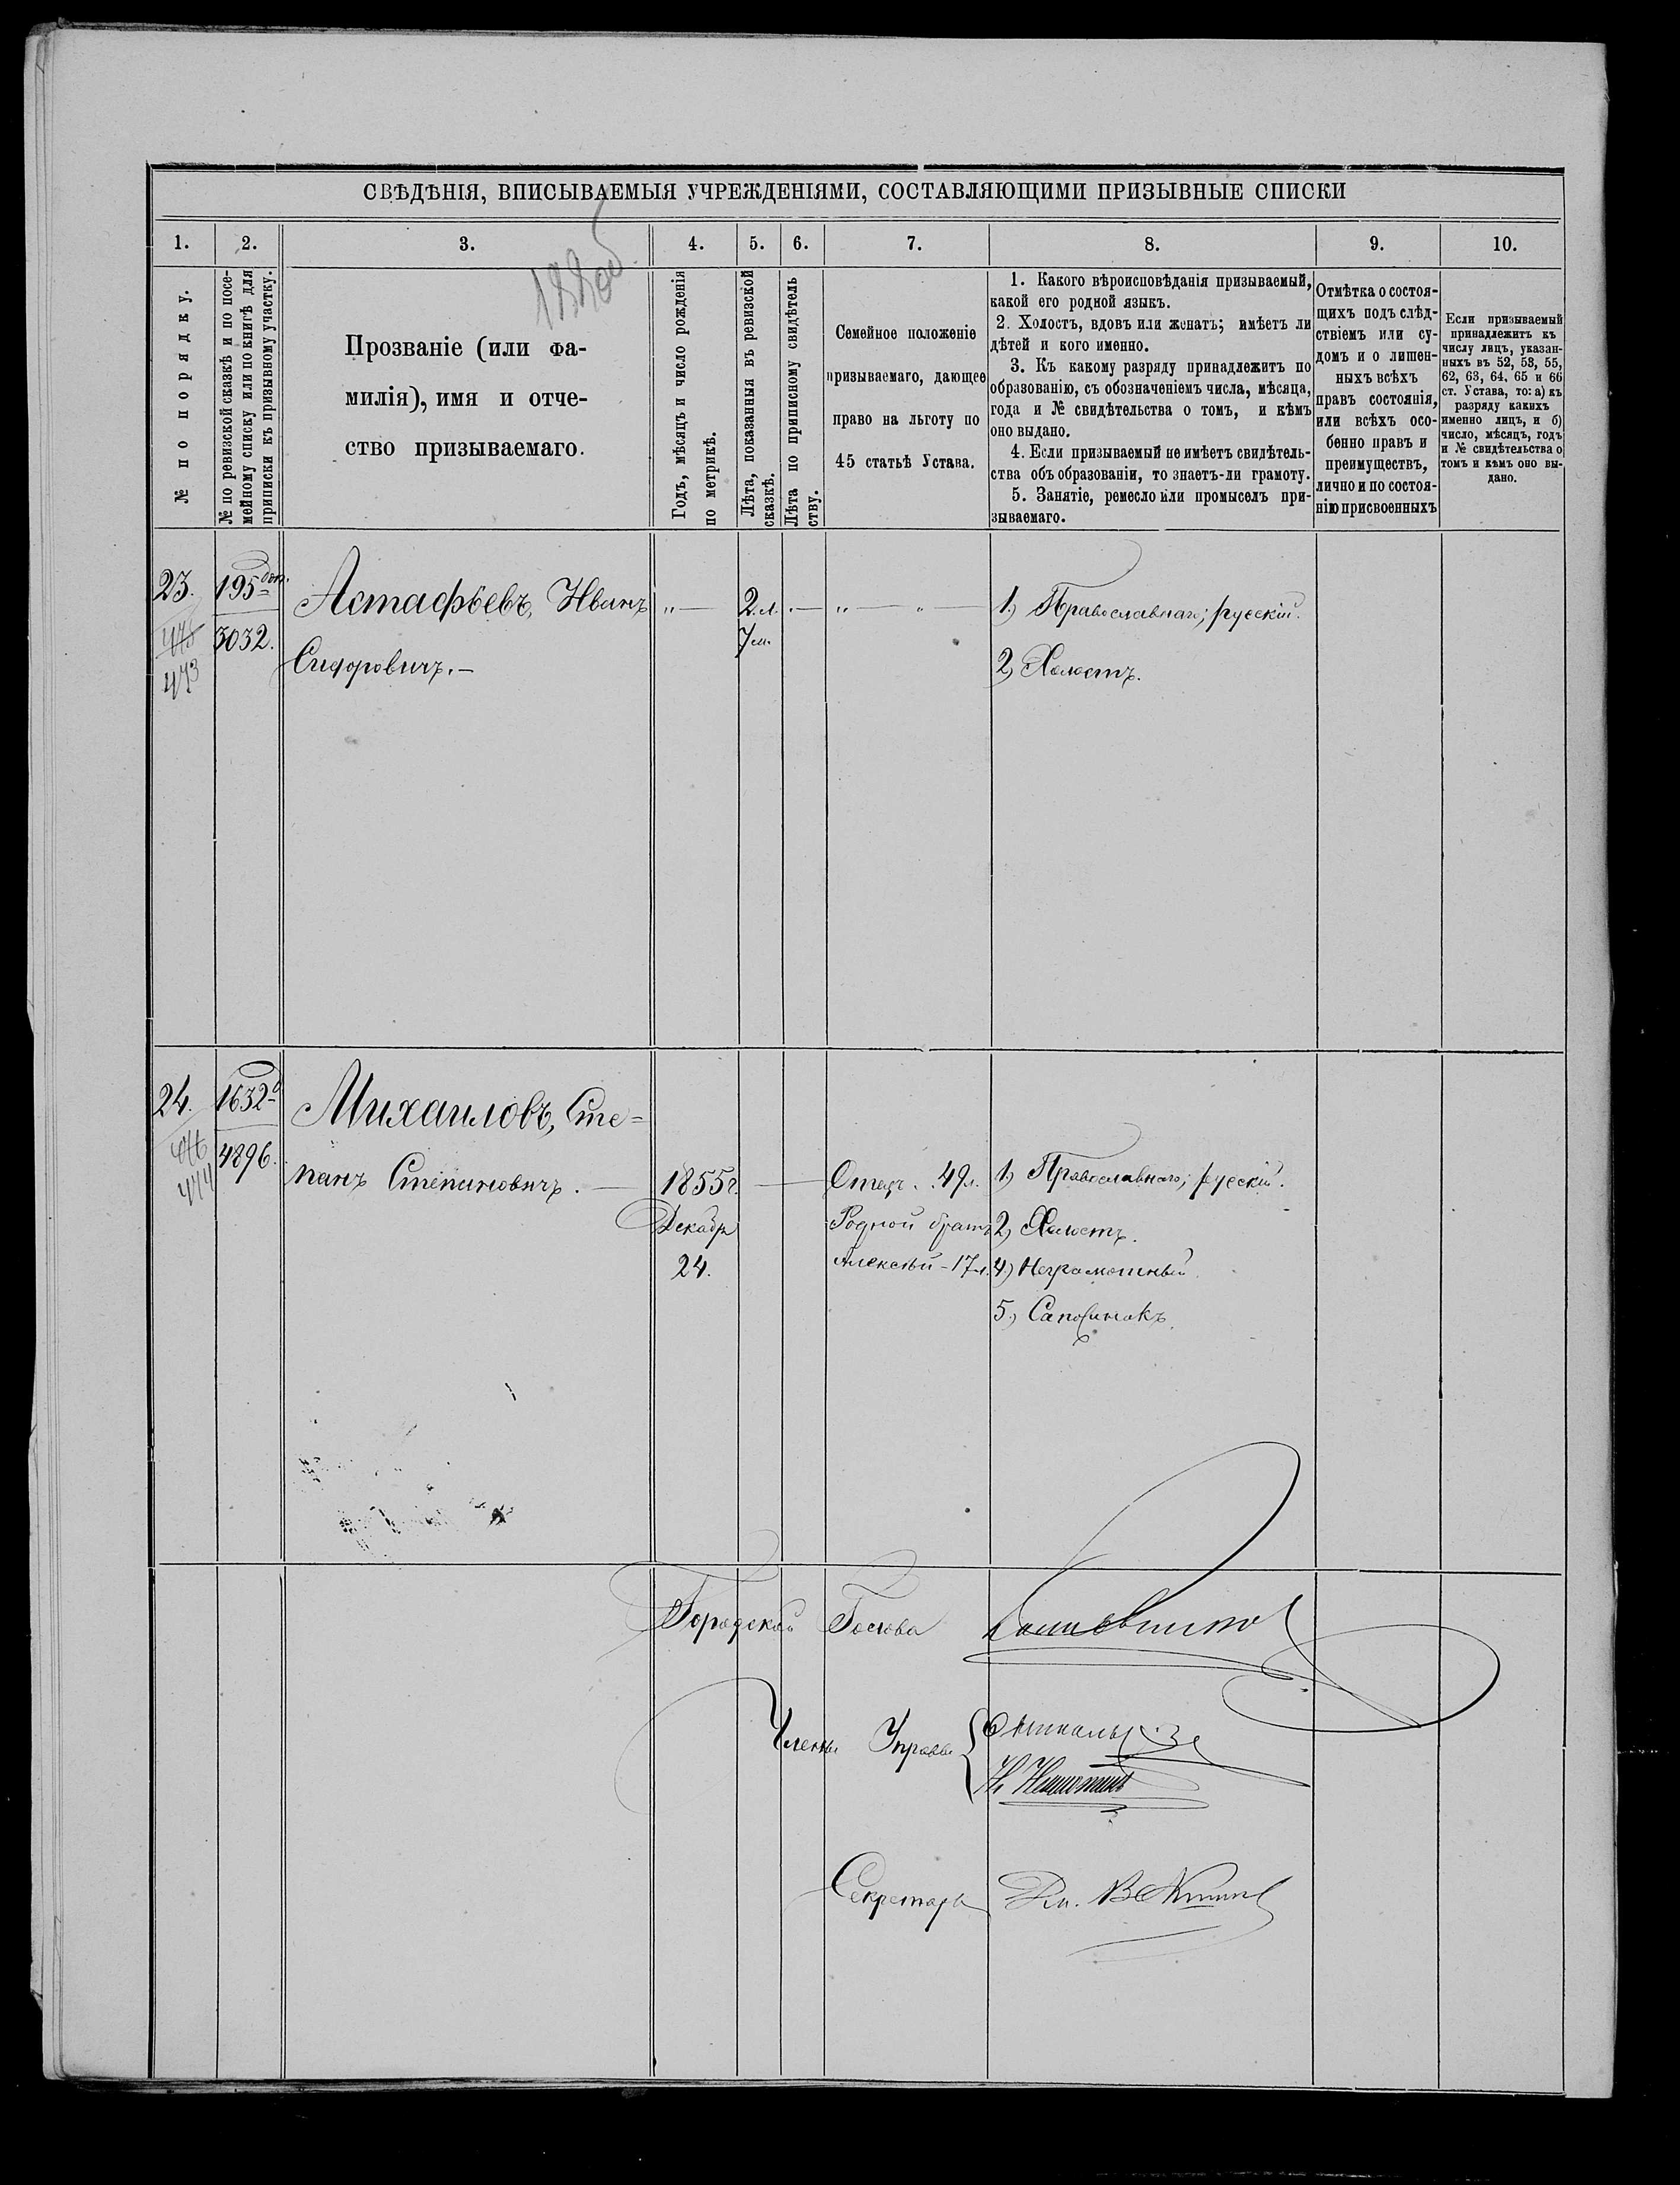 188об.
СВѢДѢНІЯ, ВПИСЫВАЕМЫЯ УЧРЕЖДЕНІЯМИ, СОСТАВЛЯЮЩИМИ ПРИЗЫВНЫЕ СПИСКИ
1. 2. 3. 4. 5. 6. 7. 8. 9. 10.
№ по порядку.
№ по ревизской сказкѣ и по посе-
мейному списку или по книгѣ для
приписки къ призывному участку.
Прозваніе (или фа-
милія), имя и отче-
ство призываемаго.
Годъ, мѣсяцъ и число рожденія
по метрикѣ.
Лѣта, показанныя въ ревизской
сказкѣ.
Лѣта по приписному свидѣтель
ству.
Семейное положеніе
призываемаго, дающее
право на льготу по
45 статьѣ Устава.
1. Какого вѣроисповѣданія призываемый,
какой его родной языкъ.
2. Холостъ, вдовъ или женатъ; имѣетъ ли
дѣтей и кого именно.
3. Къ какому разряду принадлежитъ по
образованію, съ обозначеніемъ числа, мѣсяца,
года и № свидѣтельства о томъ, и кѣмъ
оно выдано.
4. Если призываемый не имѣетъ свидѣтель-
ства объ образованіи, то знаетъ-ли грамоту.
5. Занятіе, ремесло или промыселъ при-
зываемаго.
Отмѣтка о состоя-
щихъ подъ слѣд-
ствіемъ или су-
домъ и о лишен-
ныхъ всѣхъ
правъ состоянія,
или всѣхъ осо-
бенно правъ и
преимуществъ,
лично и по состоя-
нію присвоенныхъ
Если призываемый
принадлежитъ къ
числу лицъ, указан-
ныхъ въ 52, 53, 55,
62, 63, 64, 65 и 66
ст. Устава, то: а) къ
разряду какихъ
именно лицъ, и б)
число, мѣсяцъ, годъ
и № свидѣтельства о
томъ и кѣмъ оно вы-
дано.
23.
473
195 доп.
3032.
Астафьевъ, Иванъ
Сидоровичъ.—
„—
2 л.
7 м.
„— „—
1) Православнаго; русскій.
2) Холостъ.
24.
474
1632
4896.
Михаиловъ, Сте=
панъ Степановичъ.—
1855 г.
Декабр
24.
Отецъ. 49 л.
Родной братъ
Алексѣй - 17 л.
1) Православнаго; русскій.
2) Холостъ.
4) Неграмотный.
5) Сапожникъ.
Городской Голова
Члены Управы
Секретарь